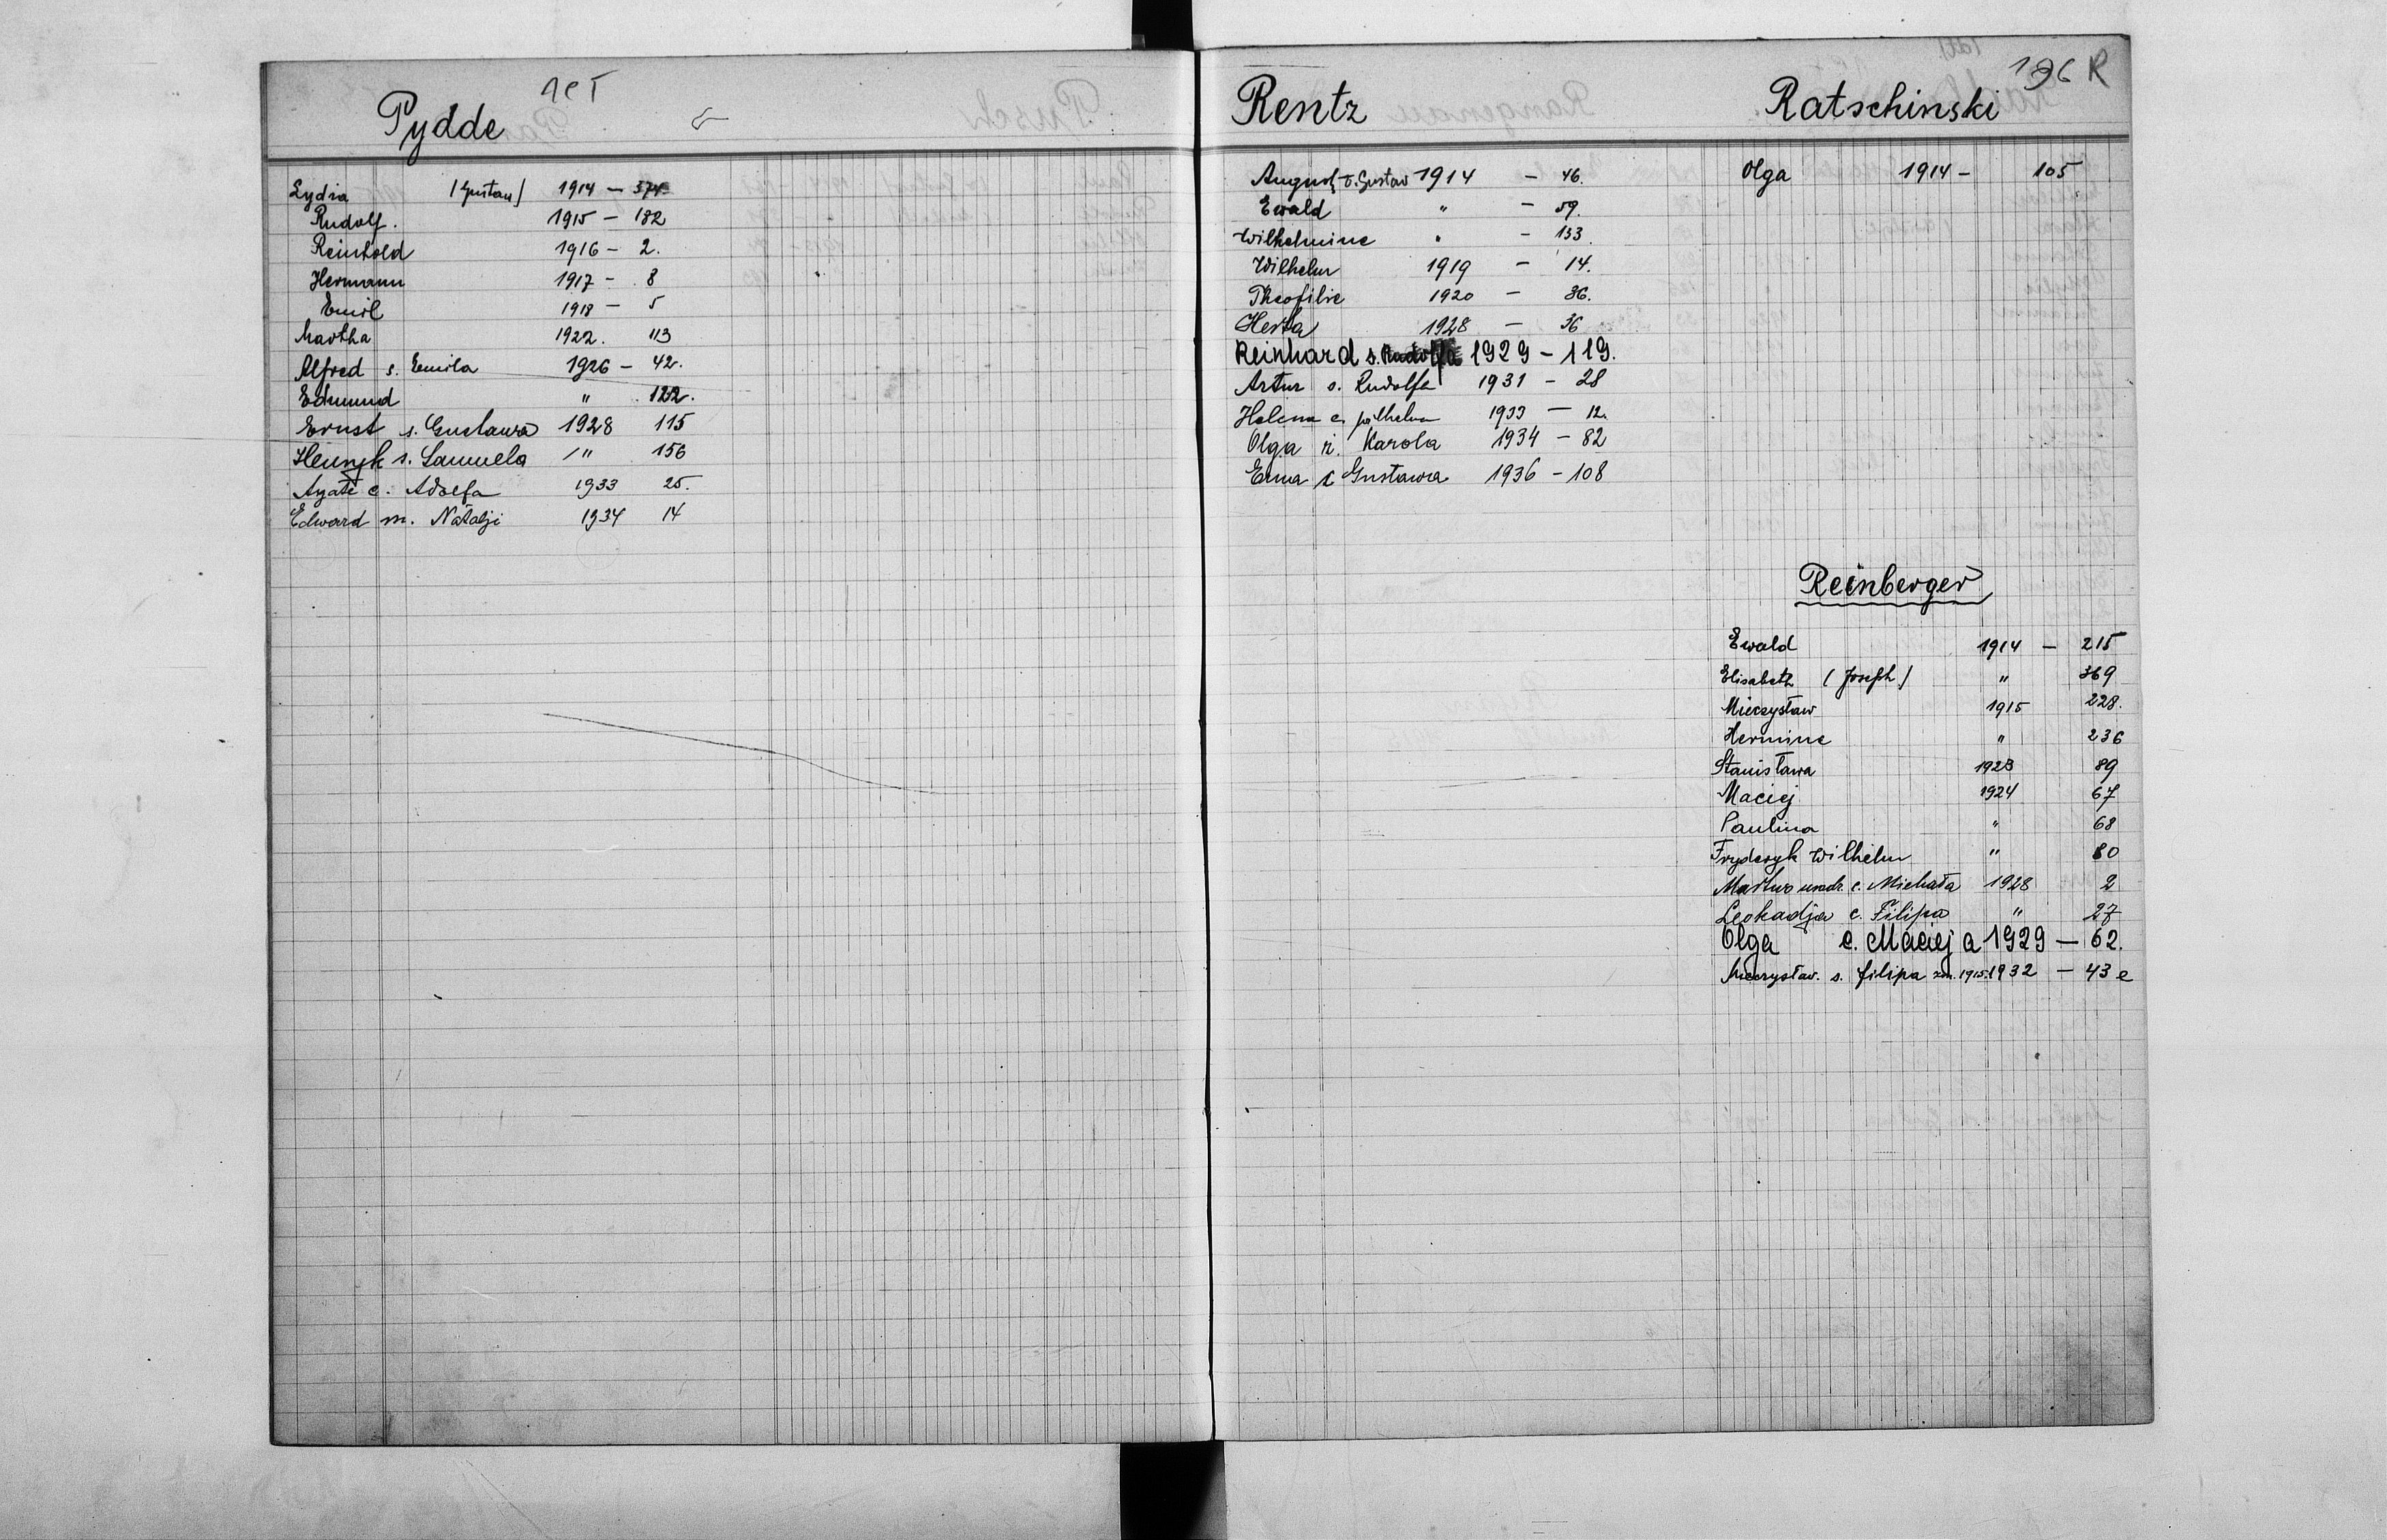 Pydde
Lydia (Gustav) 1914 — 374
Rudolf. 1915 — 182
Reinhold 1916 — 2.
Hermann 1917 — 8
Emil 1918 — 5
Martha 1922. 113
Alfred s. Emila 1926 — 42.
Edmund " 122.
Ernst s. Gustawa 1928 115
Henryk s. Samuela " 156
Agate c. Adolfa 1933 25.
Edward m. Natalji 1934 14
196 R
Rentz
August v. Gustav 1914 — 46.
Ewald " — 59.
Wilhelmine " — 133.
Wilhelm 1919 — 14.
Theofilie 1920 — 36.
Herta 1928 — 36
Reinhard s. Rudolfa 1929 — 119.
Artur s. Rudolfa 1931 — 28
Helena c. Wilhelma 1933 — 12.
Olga ż. Karola 1934 — 82
Erna c Gustawa 1936 — 108
Ratschinski
Olga 1914 — 105
Reinberger
Ewald 1914 — 215
Elisabeth (Joseph) " 369
Mieczysław 1915 228.
Hermine " 236
Stanisława 1923 89
Maciej 1924 67
Paulina " 68
Fryderyk Wilhelm " 80
c. Michała 1928 2
Leokadja c. Filipa " 27
Olga c. Macieja 1929 — 62.
Mieczysław. s. Filipa 1915. 1932 — 43 e